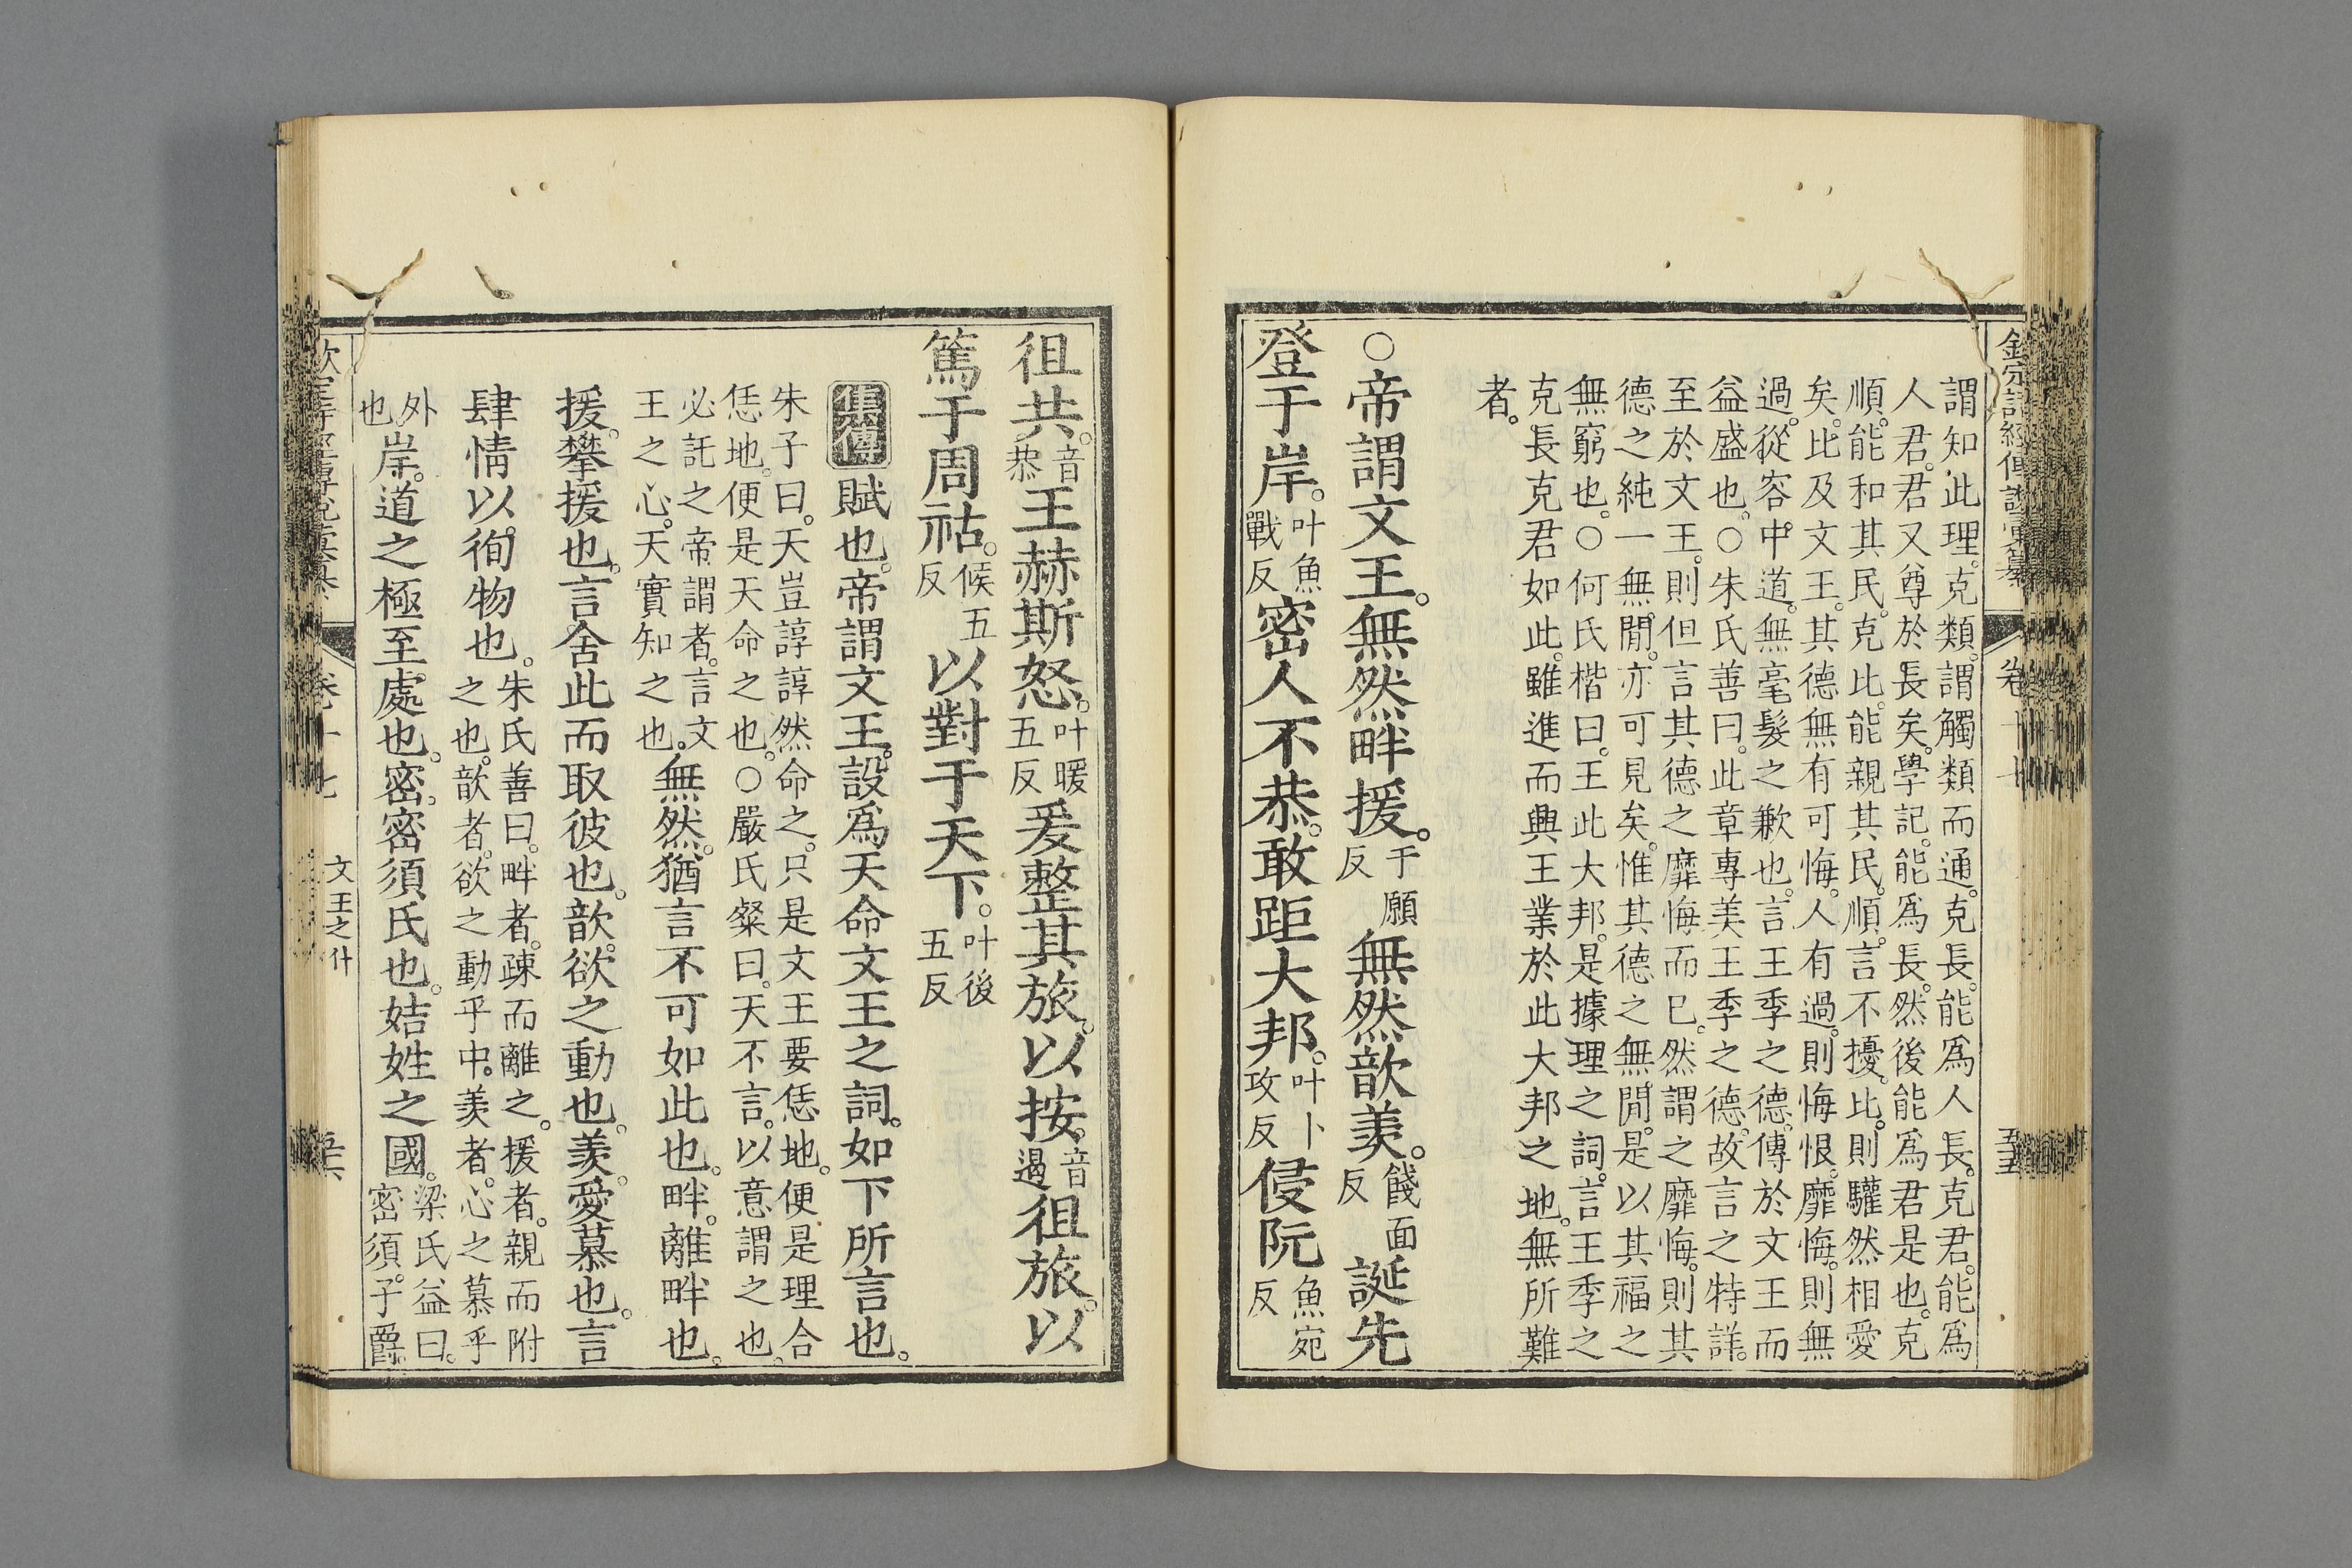 謂知此理。克類。謂觸類而通。克長。能爲人長。克君。能爲
人君。君又尊於長矣。學記。能爲長。然後能爲君是也。克
順。能和其民。克比。能親其民。順。言不擾。比。則驩然相愛
矣。比及文王。其德無有可悔。人有過。則悔恨。靡悔。則無
過。從容中道。無毫髮之歉也。言王季之德。傳於文王而
益盛也。○朱氏善曰。此章專美王季之德。故言之特詳。
至於文王。則但言其德之靡悔而已。然謂之靡悔。則其
德之純一無閒。亦可見矣。惟其德之無閒。是以其福之
無窮也。○何氏楷曰。王此大邦。是據理之詞。言王季之
克長克君如此。雖進而興王業於此大邦之地。無所難
者。
○帝謂文王。無然畔援。于願反無然歆羨。餞面反誕先
登于岸。叶魚戰反密人不恭。敢距大邦。叶卜攻反侵阮魚宛反
徂共。音恭王赫斯怒。叶暖五反爰整其旅。以按音遏徂旅。以
篤于周祜。候五反以對于天下。叶後五反
集傳賦也。帝謂文王。設爲天命文王之詞。如下所言也。
朱子曰。天豈諄諄然命之。只是文王要恁地。便是理合
恁地。便是天命之也。○嚴氏粲曰。天不言。以意謂之也。
必託之帝謂者。言文
王之心。天實知之也。無然。猶言不可如此也。畔。離畔也。
援。攀援也。言舍此而取彼也。歆。欲之動也。羨。愛慕也。言
肆情以徇物也。朱氏善曰。畔者。疎而離之。援者。親而附
之也。歆者。欲之動乎中。羨者。心之慕乎
外也。岸。道之極至處也。密。密須氏也。姞姓之國。梁氏益曰。
密須。子爵。
卷十七
文王之什